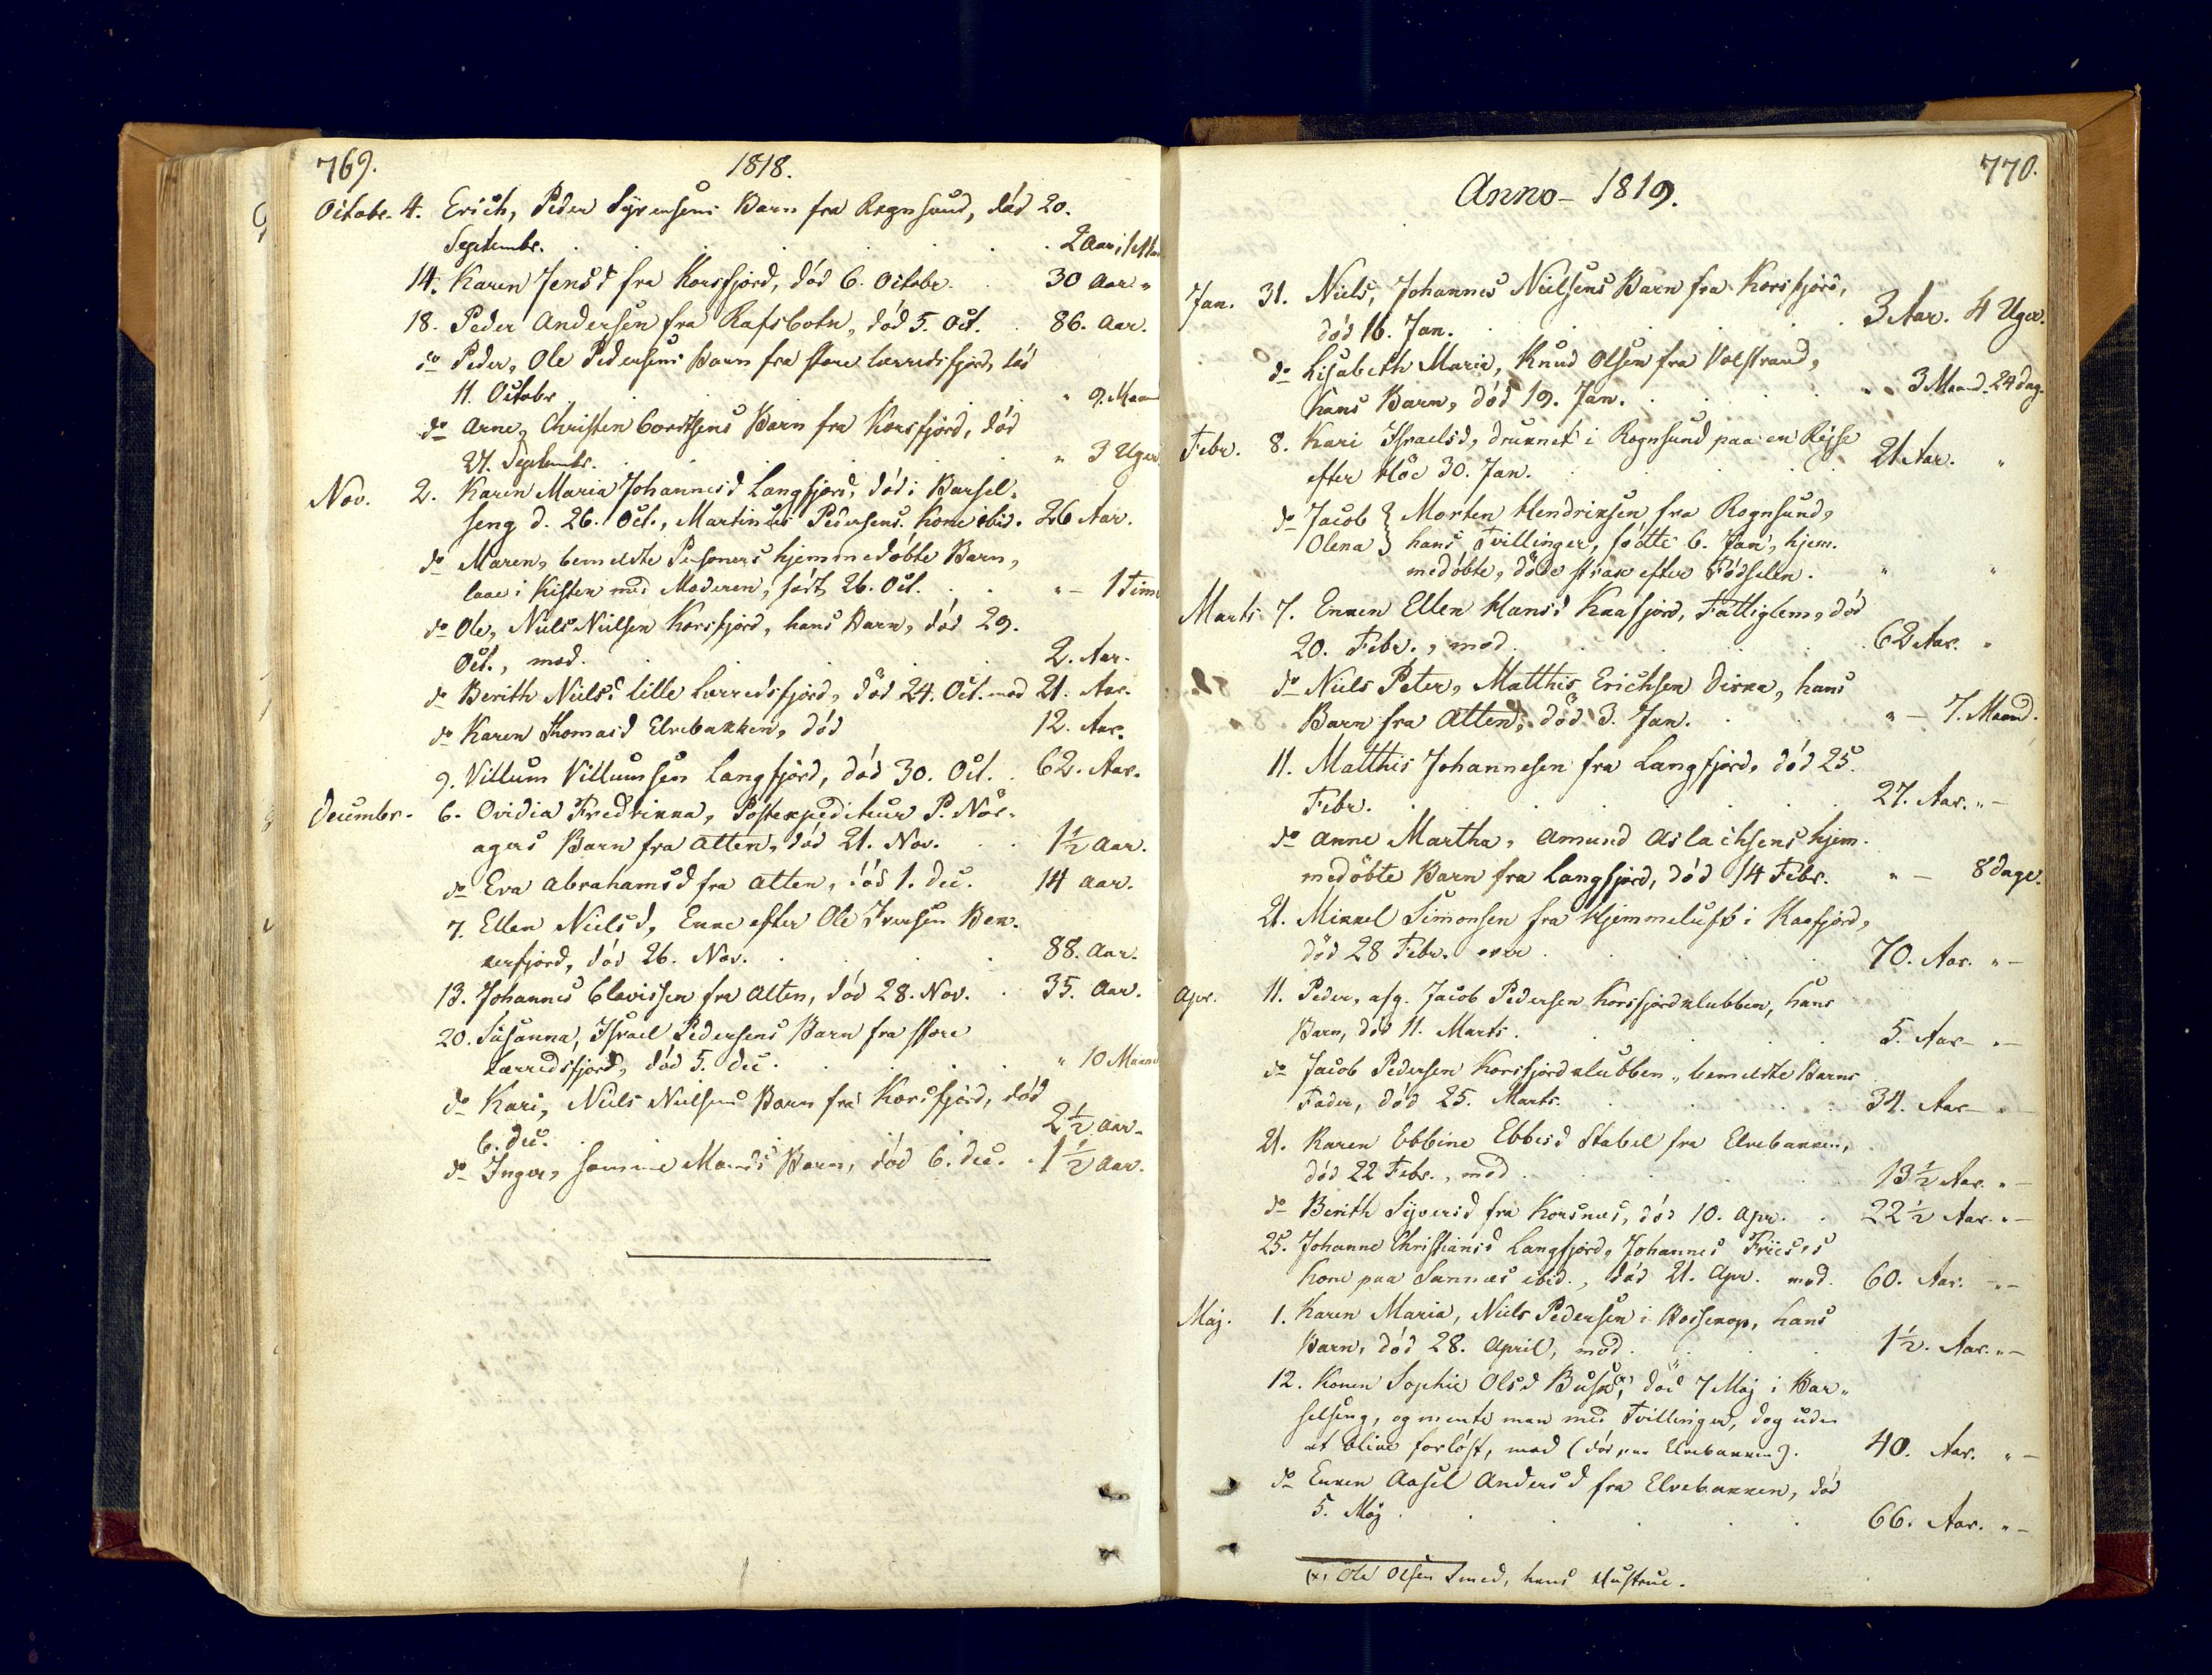 769.
1818.
Octobr. 4. Erich, Peder Syversens Barn fra Rognsund, død 20.
Septembr. 2 Aar,
14. Karen Jensd fra Korsfjord, død 6. Octobr. 30 Aar "
18. Peder Andersen fra Rafsbotn, død 5. Oct. 86. Aar.
do Peder, Ole Pedersens Barn fra store Lærredsfjord, død
11. Octobr. " 9. Maan
do Arne, Christen Cordtsens Barn fra Korsfjord, død
27. Septembr. " 3 Uger
Nov. 2. Karen Maria Johannesd Langfjord, død i Barsel-
seng d. 26. Oct., Martinus Pedersens Kone ibid. 26 Aar.
do Maren, bemeldte Persone's hjemmedøbte Barn,
laae i Kisten med Moderen, født 26. Oct. " - 1 Time
do Ole, Niels Nielsen Korsfjord, hans Barn, død 29.
Oct., mod. 2. Aar.
do Berith Nielsd lille Lærredsfjord, død 24. Oct. mod 21. Aar.
do Karen Thomasd Elvebakken, død 12. Aar.
9. Villum Villumsen Langfjord, død 30. Oct. 62. Aar.
Decembr. 6. Ovidia Fredrikka, Postexpediteur P. Nør-
agers Barn fra Alten, død 21. Nov. 1½ Aar.
do Eva Abrahamsd fra Alten, død 1. Dec. 14 Aar.
7. Ellen Nielsd, Enke efter Ole Iversen Bek-
kerfjord, død 26. Nov. 88. Aar.
13. Johannes Clavissen fra Alten, død 28. Nov. 35. Aar.
20. Susanna, Israel Pedersens Barn fra store
Lærredsfjord, død 5. Dec. " 10 Maan
do Kari, Niels Nielsens Barn fra Korsfjord, død
6. Dec. 2½ Aar.
do Inger, samme Mands Barn, død 6. Dec. 1½ Aar.
770.
Anno - 1819.
Jan. 31. Niels, Johannes Nielsens Barn fra Korsfjord,
død 16. Jan. 3 Aar. 4 Uger.
do Lisabeth Marie, Knud Olsen fra Valstrand,
hans Barn, død 19. Jan. " 3 Maand. 24 Dag.
Febr. 8. Kari Israelsd, druknet i Rognsund paa en Rejse
efter Høe 30. Jan. 21 Aar. "
do Jacob } Morten Hendriksen fra Rognsund,
Olena } hans Tvillinger, fødte 6. Jan, hjem-
medøbte, døde strax efter Fødselen. " "
Marts 7. Enken Ellen Hansd Kaafjord, Fattiglem, død
20. Febr., mod 62 Aar. "
do Niels Peter, Matthis Erichsen Dirka, hans
Barn fra Alten, død 3. Jan. " - 7. Maand.
11. Matthis Johannesen fra Langfjord, død 25.
Febr. 27. Aar. " -
do Anne Martha, Amund Aslachsens hjem-
medøbte Barn fra Langfjord, død 14 Febr. " - 8 Dage.
21. Mikkel Simonsen fra Hjemmeluft i Kaafjord,
død 28 Febr. over 70. Aar. " -
Apr. 11. Peder, afg. Jacob Pedersen Korsfjordklubben, hans
Barn, død 11. Marts. 5. Aar - " -
do Jacob Pedersen Korsfjordklubben, bemeldte Barns
Fader, død 25. Marts. 34. Aar - " -
21. Karen Ebbine Ebbesd Stabel fra Elvebakken,
død 22 Febr., mod 13½ Aar. " -
do Berith Syversd fra Korsnæs, død 10. Apr. 22½ Aar. " -
25. Johanne Christiansd Langfjord, Johannes Friis's
Kone paa Sannæs ibid., død 21. Apr. mod. 60. Aar. " -
Maj. 1. Karen Maria, Niels Pedersen i Bossekop, hans
Barn, død 28. April, mod 1½. Aar. " -
12. Konen Sophie Olsd Busk x), død 7 Maj i Bar-
selseng, og mente man med Tvillinger, dog uden
at blive forløst, mod (død paa Elvebakken). 40. Aar. " -
do Enken Aasel Andersd fra Elvebakken, død
5. Maj 66. Aar. " -
(x) Ole Olsen Smed, hans Hustrue.